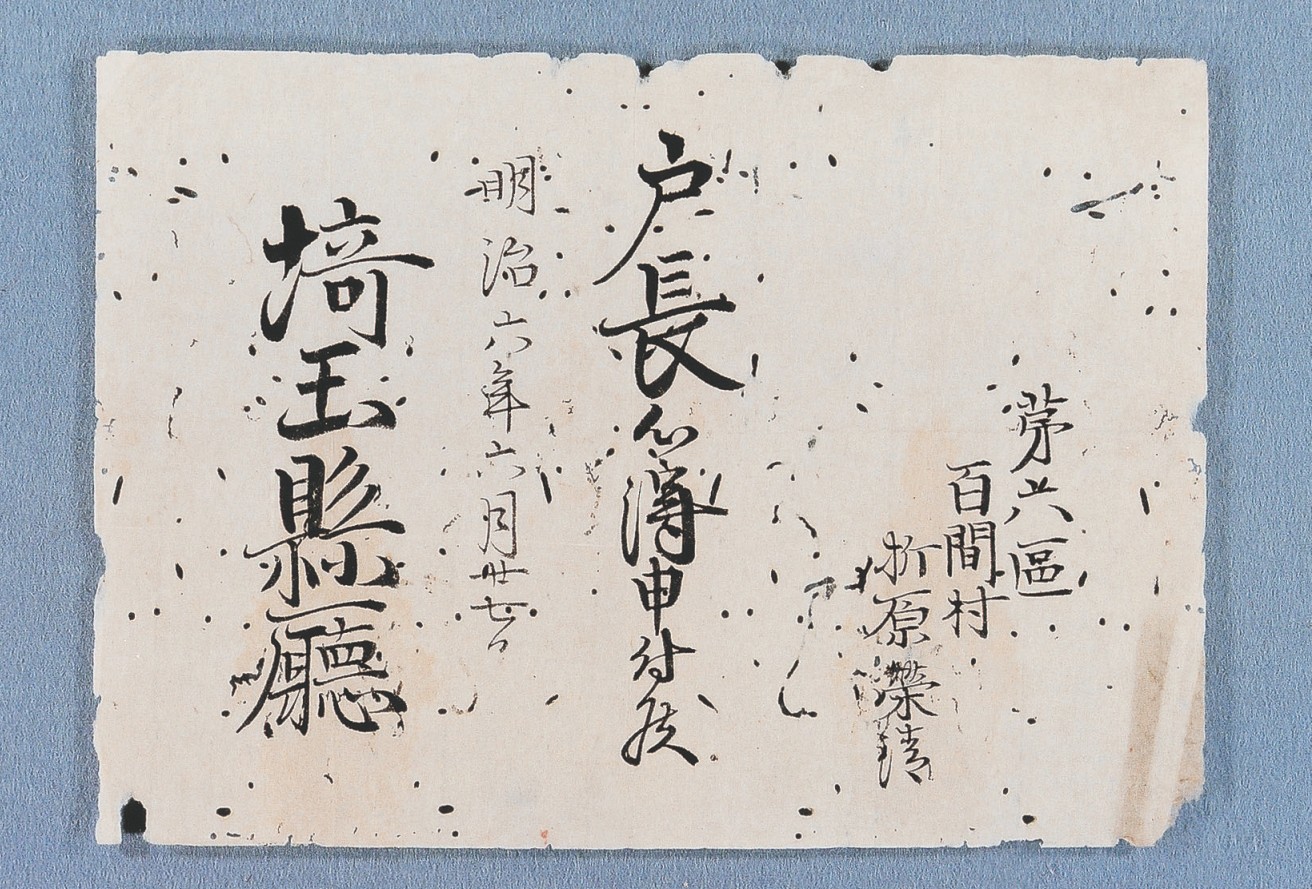 第區
百間村
折原榮清
戸長心得申付候
明治六年六月廿七日
埼玉縣廳